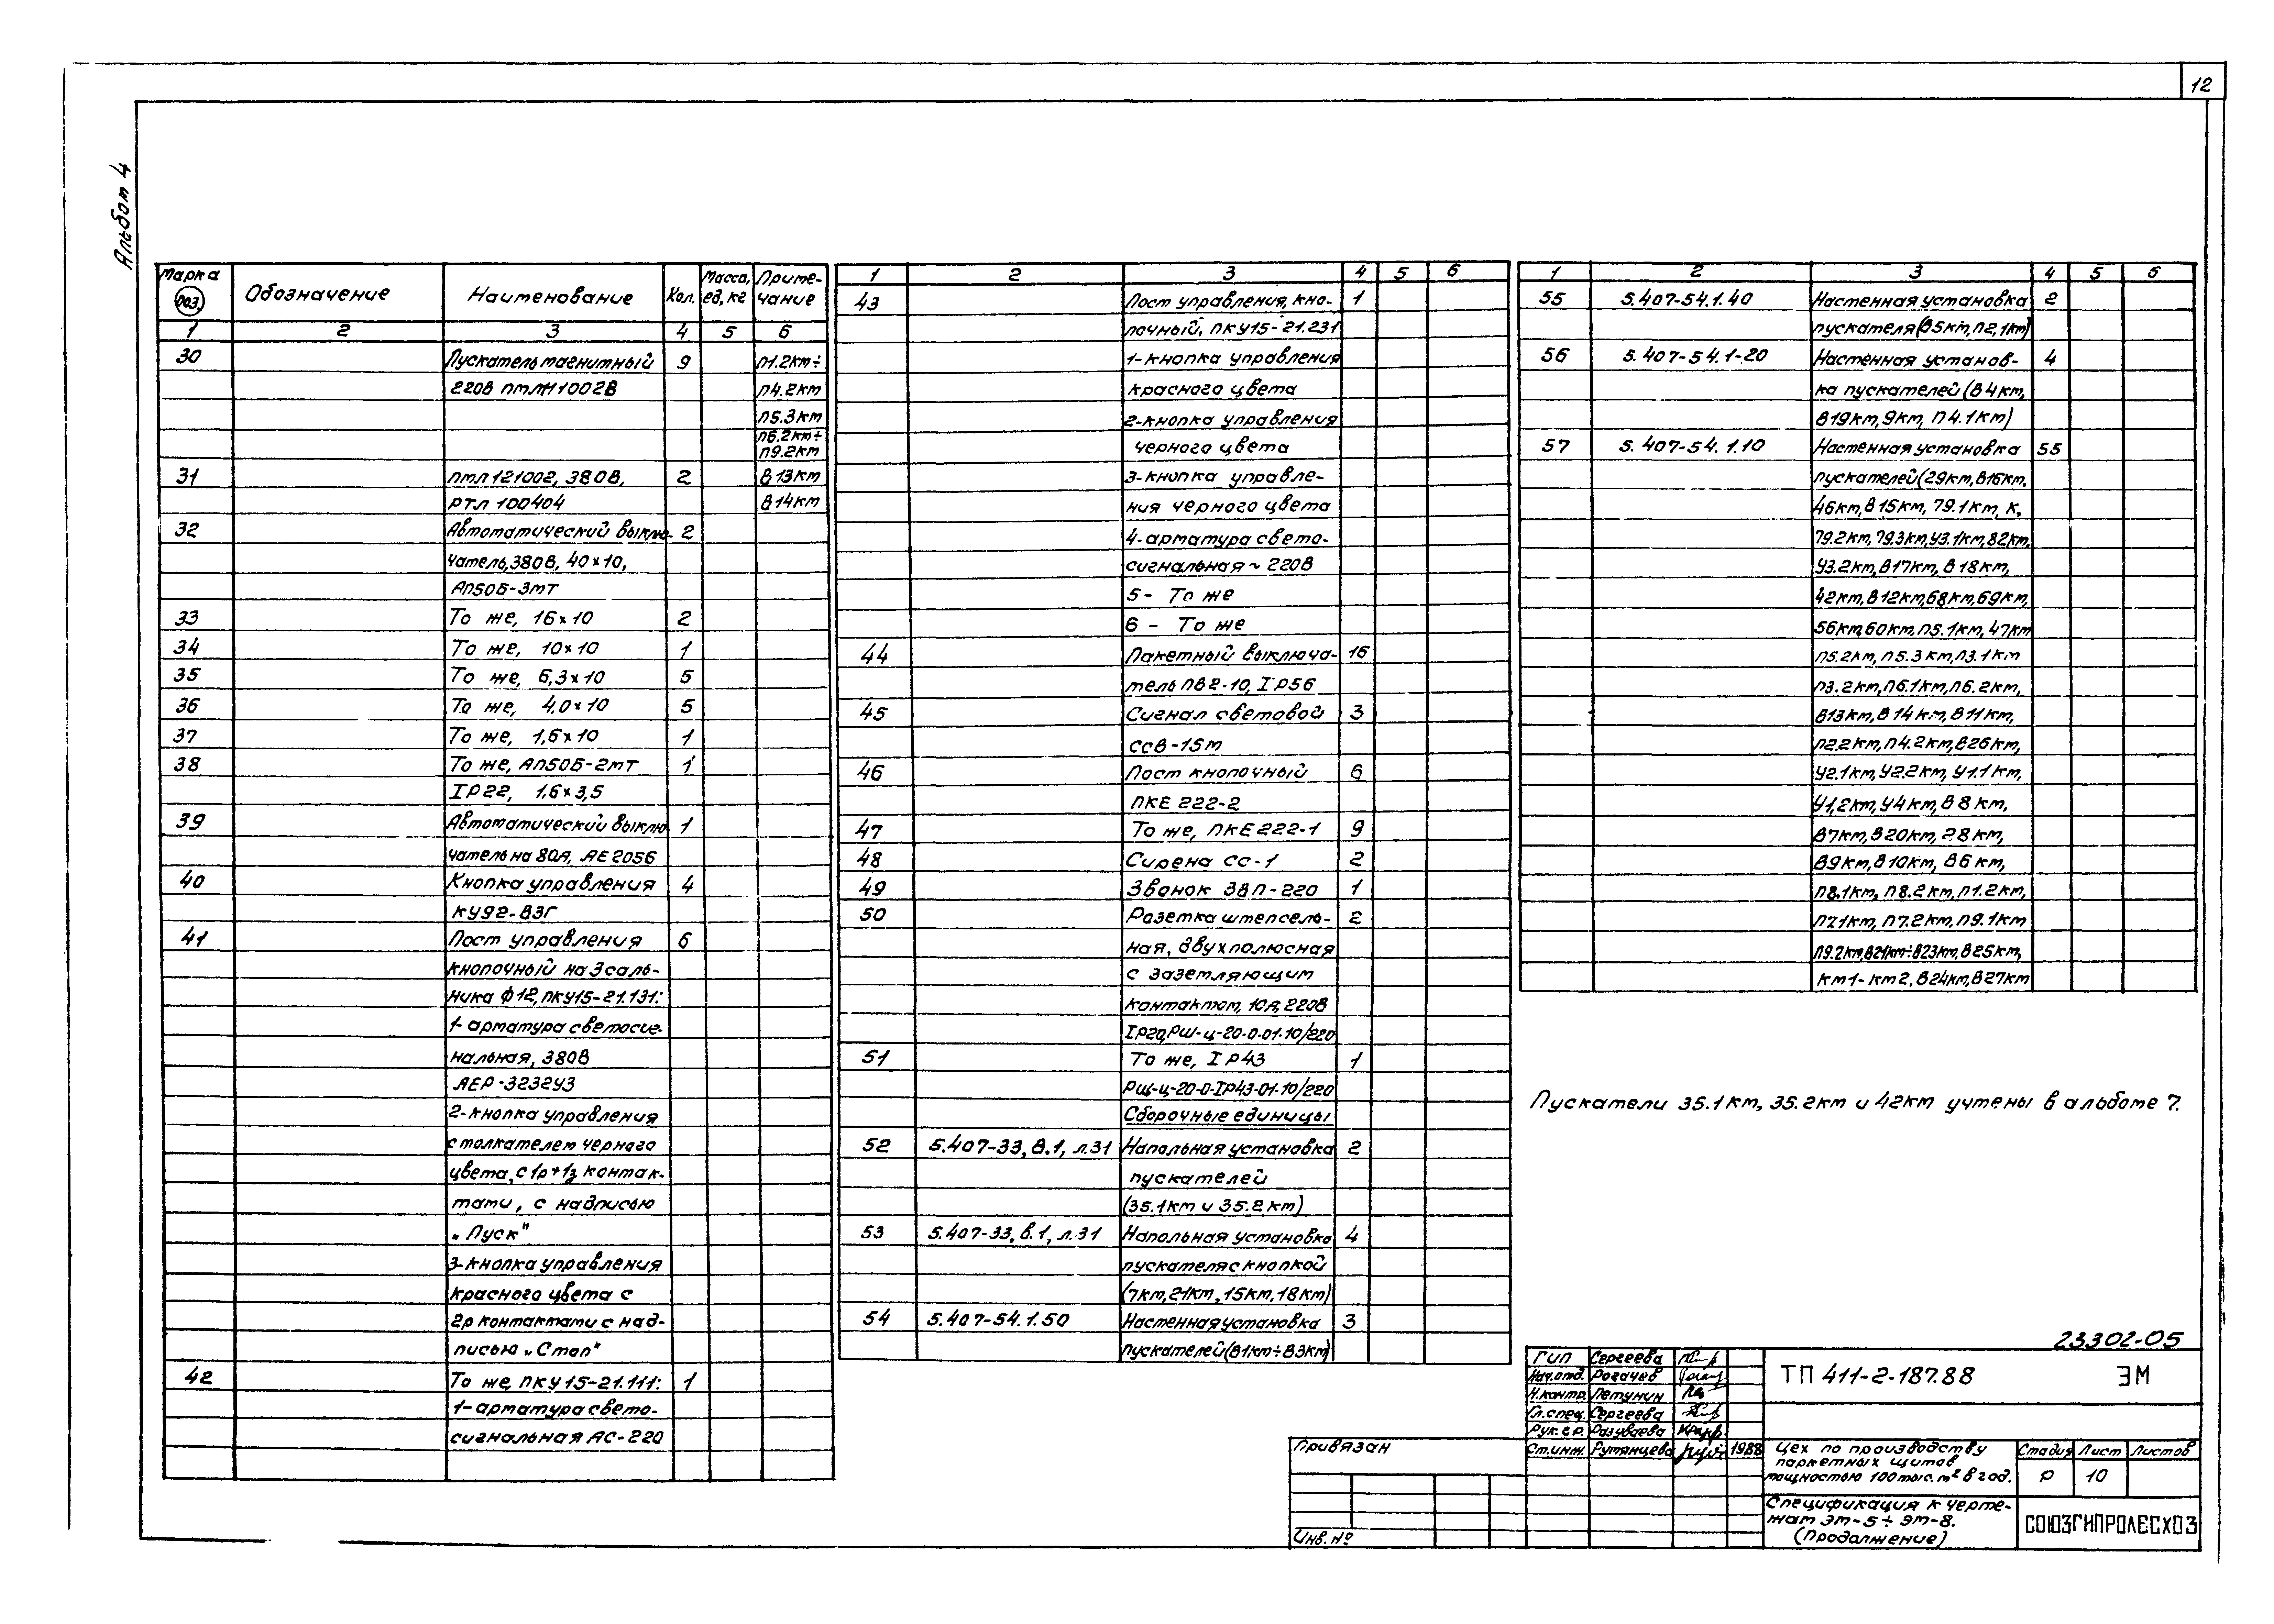 12
Альбом 4
Марка поз. Обозначение Наименование Кол. Масса, ед, кг Приме-чание
1 2 3 4 5 6
30 Пускатель магнитный 9 П1.2км÷
220В ПМЛ-11002В П4.2км
П5.3км
П6.2км÷
П9.2км
31 ПМЛ 121002, 380В, 2 В13км
РТЛ 100404 В14км
32 Автоматический выклю- 2
чатель, 380В, 40×10,
АП50Б-3МТ
33 То же, 16×10 2
34 То же, 10×10 1
35 То же, 6,3×10 5
36 То же, 4,0×10 5
37 То же, 1,6×10 1
38 То же, АП50Б-2МТ 1
IP22, 1,6×3,5
39 Автоматический выклю 1
чатель на 80А, АЕ2056
40 Кнопка управления 4
КУ92-ВЗГ
41 Пост управления 6
кнопочный на 3 саль-
ника ф12, ПКУ15-21.131:
1- арматура светосиг-
нальная, 380В
АЕР-3232У3
2-кнопка управления
с толкателем черного
цвета, с 1р+1з контак-
тами, с надписью
„Пуск"
3-кнопка управления
красного цвета с
2р контактами с над-
писью „Стоп"
42 То же, ПКУ15-21.111: 1
1-арматура свето-
сигнальная АС-220
1 2 3 4 5 6
43 Пост управления, кно- 1
почный, ПКУ15-21.231
1-кнопка управления
красного цвета
2-кнопка управления
черного цвета
3-кнопка управле-
ния черного цвета
4-арматура свето-
сигнальная ~ 220В
5- То же
6 - То же
44 Пакетный выключа- 16
тель ПВ2-10, IP56
45 Сигнал световой 3
ССВ-15М
46 Пост кнопочный 6
ПКЕ 222-2
47 То же, ПКЕ 222-1 9
48 Сирена СС-1 2
49 Звонок ЗВП-220 1
50 Розетка штепсель- 2
ная, двухполюсная
с заземляющим
контактом, 10А, 220В
IP20, РШ-Ц-20-0-01-10/220
51 То же, IP43 1
РЩ-Ц-20-0-IP43-01-10/220
Сборочные единицы
52 5.407-33, В.1, л.31 Напольная установка 2
пускателей
(35.1км и 35.2км)
53 5.407-33, В.1, л.31 Напольная установка 4
пускателя с кнопкой
(7км, 21км, 15км, 18км)
54 5.407-54.1.50 Настенная установка 3
пускателей (В1км÷В3км)
1 2 3 4 5 6
55 5.407-54.1.40 Настенная установка 2
пускателя (В5км, П2,1км)
56 5.407-54.1-20 Настенная установ- 4
ка пускателей (В4км,
В19км, 9км, П4.1км)
57 5.407-54.1.10 Настенная установка 55
пускателей (29км, В16км,
46км, В15км, 79.1км, К,
79.2км, 79.3км, У3.1км, 82км,
У3.2км, В17км, В18км,
42км, В12км, 68км, 69км,
56км, 60км, П5.1км, 47км
П5.2км, П5.3км, П3.1км
П3.2км, П6.1км, П6.2км,
В13км, В14км, В11км,
П2.2км, П4.2км, В26км,
У2.1км, У2.2км, У1.1км,
У1,2км, У4км, В8км,
В7км, В20км, 28км,
В9км, В10км, В6км,
П8.1км, П8.2км, П1.2км,
П7.1км, П7.2км, П9.1км
П9.2км, В21км÷В23км, В25км,
КМ1-КМ2, В24км, В27км
Пускатели 35.1км, 35.2км и 42км учтены в альбоме 7.
23302-05
ГИП Сергеева
Нач.отд. Рогачев
Н.контр. Летунин
Гл.спец. Сергеева
Рук.гр. Разуваева
Ст.инж. Румянцева 1988
ТП 411-2-187.88 ЭМ
Цех по производству
паркетных щитов
мощностью 100тыс.м² в год.
Стадия Лист Листов
Р 10
Спецификация к черте-
жам ЭМ-5÷ЭМ-8.
(Продолжение)
СОЮЗГИПРОЛЕСХОЗ
Привязан
Инв.№